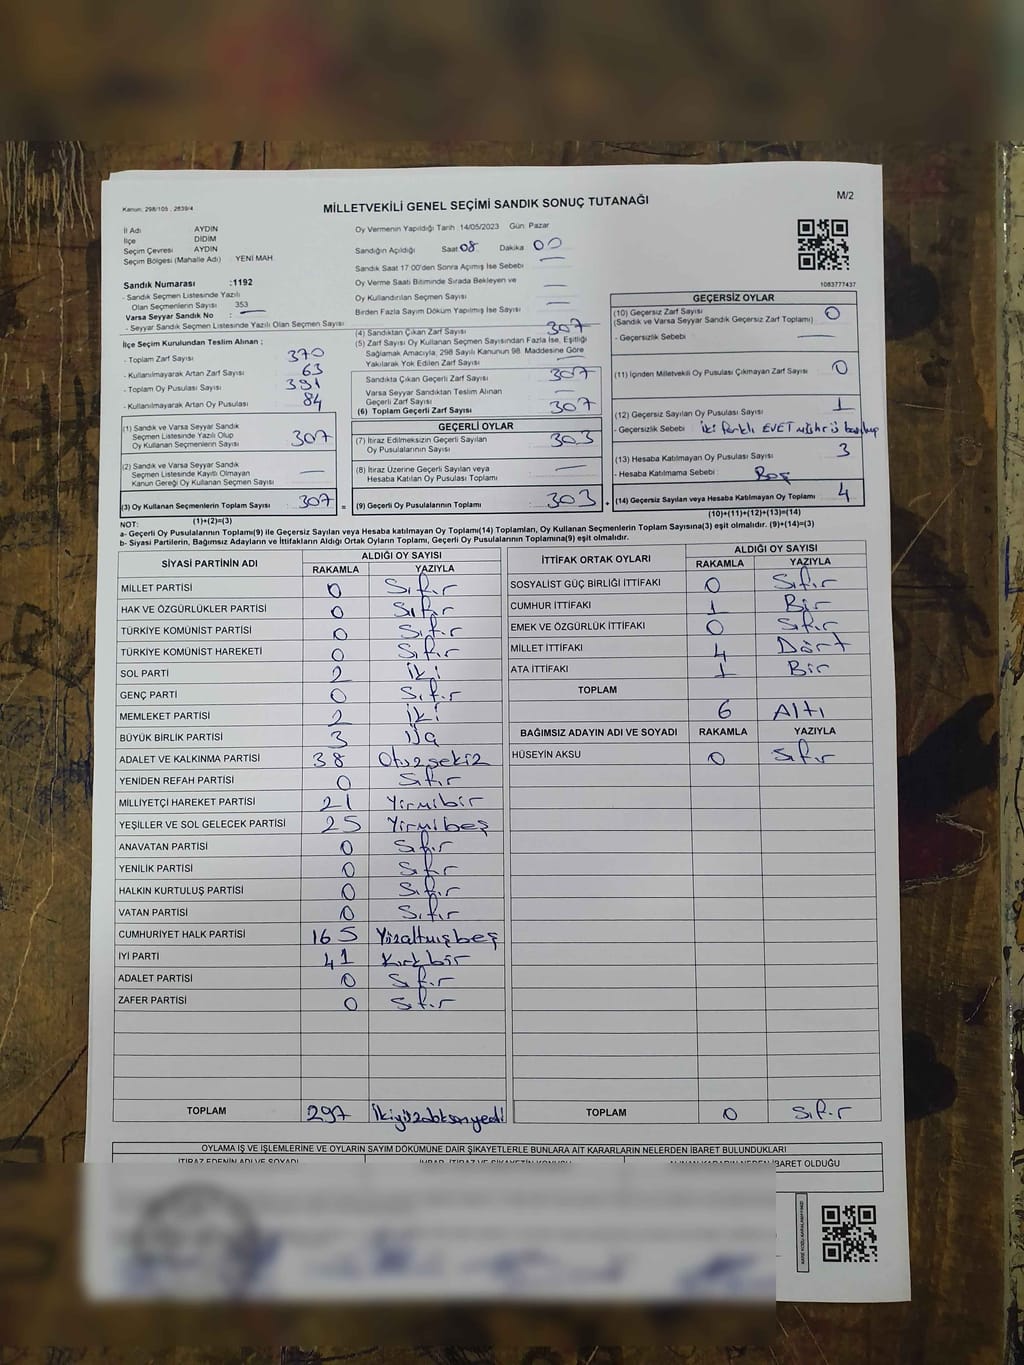 Kanun: 298/105 , 2839/4
MİLLETVEKİLİ GENEL SEÇİMİ SANDIK SONUÇ TUTANAĞI
M/2
İl Adı AYDIN
İlçe DİDİM
Seçim Çevresi AYDIN
Seçim Bölgesi (Mahalle Adı) : YENİ MAH.
Sandık Numarası :1192
- Sandık Seçmen Listesinde Yazılı
Olan Seçmenlerin Sayısı 353
Varsa Seyyar Sandık No : —
- Seyyar Sandık Seçmen Listesinde Yazılı Olan Seçmen Sayısı
İlçe Seçim Kurulundan Teslim Alınan ;
- Toplam Zarf Sayısı 370
- Kullanılmayarak Artan Zarf Sayısı 63
- Toplam Oy Pusulası Sayısı 391
- Kullanılmayarak Artan Oy Pusulası 84
(1) Sandık ve Varsa Seyyar Sandık
Seçmen Listesinde Yazılı Olup
Oy Kullanan Seçmenlerin Sayısı 307
(2) Sandık ve Varsa Seyyar Sandık
Seçmen Listesinde Kayıtlı Olmayan
Kanun Gereği Oy Kullanan Seçmen Sayısı —
(3) Oy Kullanan Seçmenlerin Toplam Sayısı 307
(1)+(2)=(3)
Oy Vermenin Yapıldığı Tarih : 14/05/2023 Gün: Pazar
Sandığın Açıldığı Saat 08 Dakika 00
Sandık Saat 17:00'den Sonra Açımış İse Sebebi —
Oy Verme Saati Bitiminde Sırada Bekleyen ve
Oy Kullandırılan Seçmen Sayısı —
Birden Fazla Sayım Döküm Yapılmış İse Sayısı —
(4) Sandıktan Çıkan Zarf Sayısı 307
(5) Zarf Sayısı Oy Kullanan Seçmen Sayısından Fazla İse, Eşitliği
Sağlamak Amacıyla, 298 Sayılı Kanunun 98. Maddesine Göre
Yakılarak Yok Edilen Zarf Sayısı —
Sandıkta Çıkan Geçerli Zarf Sayısı 307
Varsa Seyyar Sandıktan Teslim Alınan
Geçerli Zarf Sayısı —
(6) Toplam Geçerli Zarf Sayısı 307
GEÇERLİ OYLAR
(7) İtiraz Edilmeksizin Geçerli Sayılan
Oy Pusulalarının Toplamı 303
(8) İtiraz Üzerine Geçerli Sayılan veya
Hesaba Katılan Oy Pusulaları Toplamı —
= (9) Geçerli Oy Pusulalarının Toplamı 303 +
1083777437
GEÇERSİZ OYLAR
(10) Geçersiz Zarf Sayısı 0
(Sandık ve Varsa Seyyar Sandık Geçersiz Zarf Toplamı)
- Geçersizlik Sebebi : —
(11) İçinden Milletvekili Oy Pusulası Çıkmayan Zarf Sayısı 0
(12) Geçersiz Sayılan Oy Pusulası Sayısı 1
- Geçersizlik Sebebi : iki farklı EVET mührü
(13) Hesaba Katılmayan Oy Pusulası Sayısı 3
- Hesaba Katılmama Sebebi : Boş
(14) Geçersiz Sayılan veya Hesaba Katılmayan Oy Toplamı 4
(10)+(11)+(12)+(13)=(14)
NOT:
a- Geçerli Oy Pusulalarının Toplamı(9) ile Geçersiz Sayılan veya Hesaba katılmayan Oy Toplamı(14) Toplamları, Oy Kullanan Seçmenlerin Toplam Sayısına(3) eşit olmalıdır. (9)+(14)=(3)
b- Siyasi Partilerin, Bağımsız Adayların ve İttifakların Aldığı Ortak Oyların Toplamı, Geçerli Oy Pusulalarının Toplamına(9) eşit olmalıdır.
SİYASİ PARTİNİN ADI ALDIĞI OY SAYISI
RAKAMLA YAZIYLA
MİLLET PARTİSİ 0 Sıfır
HAK VE ÖZGÜRLÜKLER PARTİSİ 0 Sıfır
TÜRKİYE KOMÜNİST PARTİSİ 0 Sıfır
TÜRKİYE KOMÜNİST HAREKETİ 0 Sıfır
SOL PARTİ 2 İki
GENÇ PARTİ 0 Sıfır
MEMLEKET PARTİSİ 2 İki
BÜYÜK BİRLİK PARTİSİ 3 Üç
ADALET VE KALKINMA PARTİSİ 38 Otuzsekiz
YENİDEN REFAH PARTİSİ 0 Sıfır
MİLLİYETÇİ HAREKET PARTİSİ 21 Yirmibir
YEŞİLLER VE SOL GELECEK PARTİSİ 25 Yirmibeş
ANAVATAN PARTİSİ 0 Sıfır
YENİLİK PARTİSİ 0 Sıfır
HALKIN KURTULUŞ PARTİSİ 0 Sıfır
VATAN PARTİSİ 0 Sıfır
CUMHURİYET HALK PARTİSİ 165 Yüzaltmışbeş
İYİ PARTİ 41 Kırkbir
ADALET PARTİSİ 0 Sıfır
ZAFER PARTİSİ 0 Sıfır
TOPLAM 297 İkiyüzdoksanyedi
İTTİFAK ORTAK OYLARI ALDIĞI OY SAYISI
RAKAMLA YAZIYLA
SOSYALİST GÜÇ BİRLİĞİ İTTİFAKI 0 Sıfır
CUMHUR İTTİFAKI 1 Bir
EMEK VE ÖZGÜRLÜK İTTİFAKI 0 Sıfır
MİLLET İTTİFAKI 4 Dört
ATA İTTİFAKI 1 Bir
TOPLAM
6 Altı
BAĞIMSIZ ADAYIN ADI VE SOYADI RAKAMLA YAZIYLA
HÜSEYİN AKSU 0 Sıfır
TOPLAM 0 Sıfır
OYLAMA İŞ VE İŞLEMLERİNE VE OYLARIN SAYIM DÖKÜMÜNE DAİR ŞİKAYETLERLE BUNLARA AİT KARARLARIN NELERDEN İBARET BULUNDUKLARI
İTİRAZ EDENİN ADI VE SOYADI İHBAR, İTİRAZ VE ŞİKAYETİN KONUSU ALINAN KARARIN NEDEN İBARET OLDUĞU